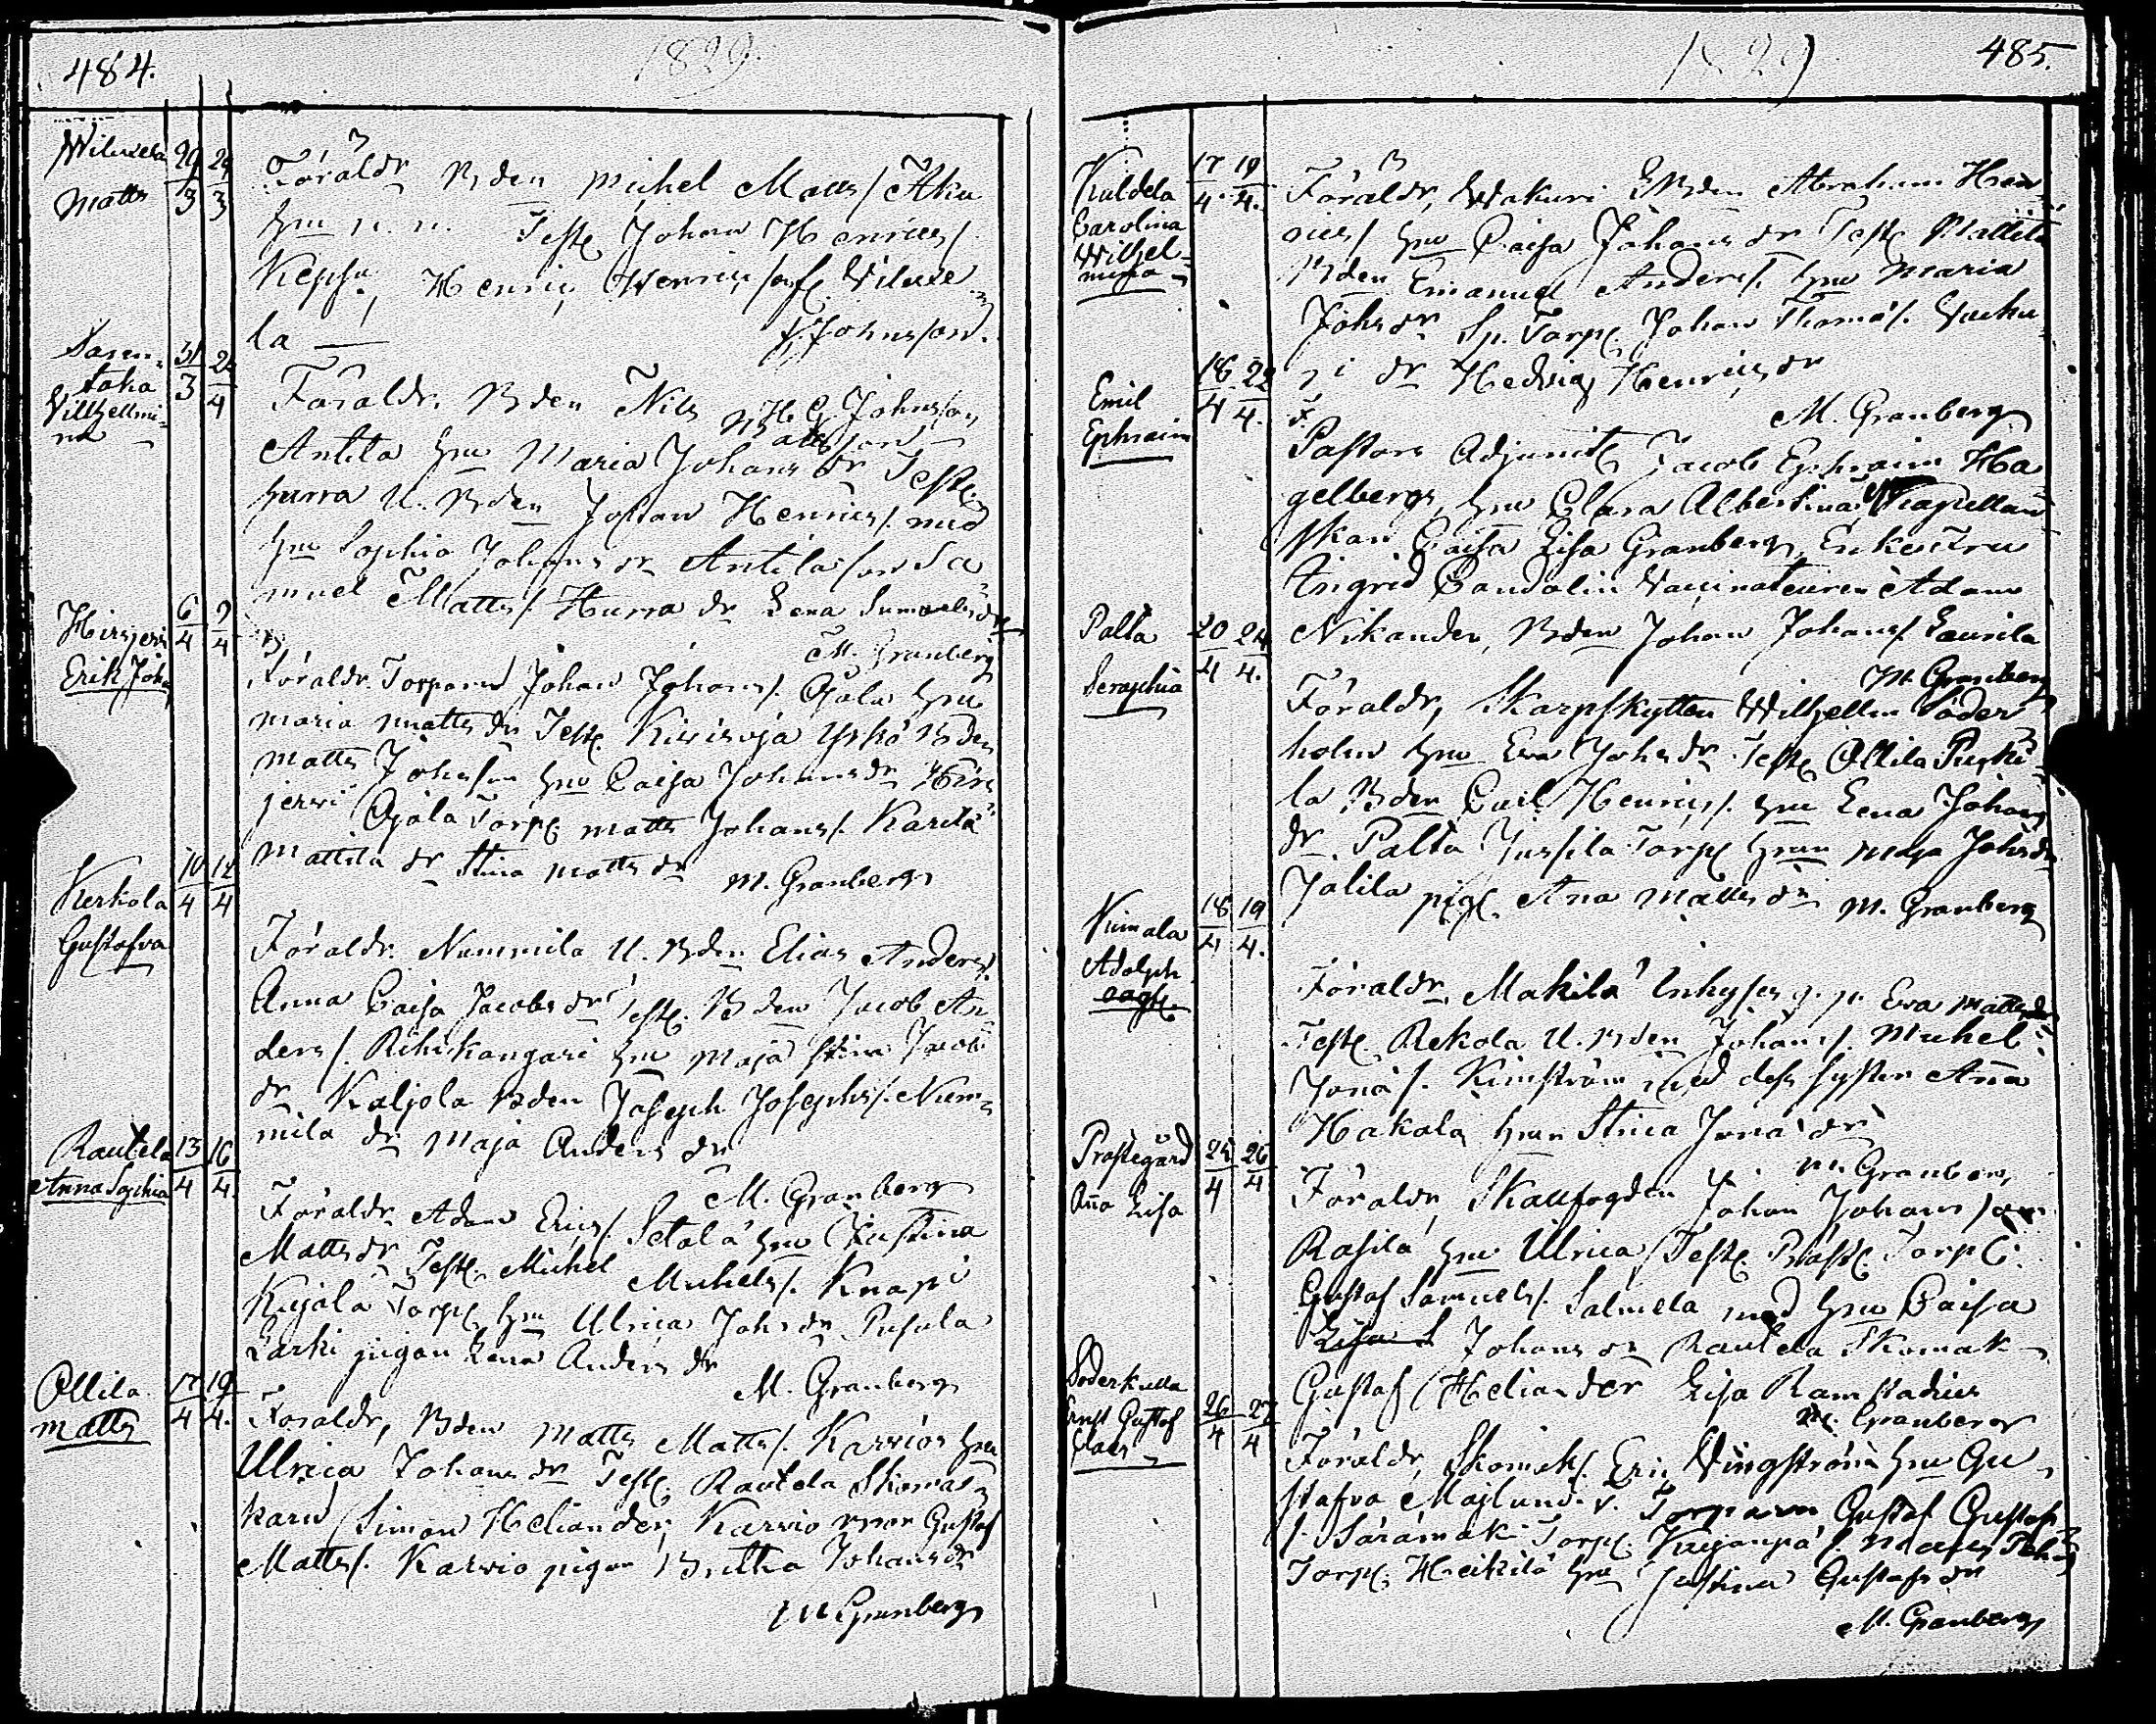 484.
1829.
Wiluxela
Matts
29/3 29/3
Föräldr Bden Michel Matts/ Aku
hu n. n. Test. Johan Henrics/.
Keppu, Henric Henrics/ Viluxe
la J. Johnsson.
Saren-
toka
Vilhellmi-
na
31/3
Föräldr. Bden Nils Mattsson
H G Johnsson
Antila hu Maria Johans dr Test.
Hurra U. Bden Johan Henrics/. med
hu Sophia Johans dr Antila son Sa
muel Matts/. Hurra dr Lena Samuelsdr
M. Granberg
Hirsjerwi
Erik Joh.
6/4 9/4
Föräldr. Torparen Johan Johans/. Ojala hu
Maria Matts dr Test. Bden
Matts Johansson hu Caisa Johans dr Hirs
jerwi Ojala Torp. Matts Johans/. Karilä
Mattila dr Stina Matts dr M. Granberg
Kerkola
Gustafva
10/4 12/4
Föräldr. Nummila U. Bden Elias Anders/.
Anna Caisa Jacobs dr Test. Bden Jacob An-
ders/. Rihikangari hu Maja Stina Jacobs
dr Kaljola Bden Joseph Josephs/. Num-
mila dr Maja Anders dr
M. Granberg
Rautela
Anna Sophia
13/4 16/4
Föräldr Adam Erics/. Setälä hu Justina
Matts dr Test. Michel Michels/. Knapi
Kujala Torp. hu Ulrica Johs dr Pusula
Larki pigan Lena Anders dr
M. Granberg
Ollila
Matts
17/4 19/4.
Föräldr, Bden Matts Matts/. Karvion hu
Ulrica Johans dr Test. Rautela Skoma-
karen Simon Heliander, Karvio Gustaf
Matts/. Karvio pigan Britha Johans dr
M Granberg
1829
485.
Kuldela
Carolina
Wilhel-
mina
17/4. 19/4.
Föräldr, Wakuri Bden Abraham Hen-
rics/ hu Caisa Johans dr Test. Mattila
Bden Emanuel Anders/. hu Maria
Johs dr Sp. Torp. Johan Thomas/. Vuehu-
ri dr Hedvig Henrics dr
M. Granberg
Emil
Ephraim
18/4 22/4.
F.
Pastors Adjunct. Jacob Ephraim Ha
gelberg, hu Clara Albertina, Capellan
skan Caisa Lisa Granberg, Enkefru
Ingrid Candolin Vaccinateuren Adam
Nikander, Bden Johan Johans/ Laurila
M. Granberg
Palta
Seraphia
20/4 24/4.
Föräldr, Skarpskytten Wilhellm Söder
holm hu Eva Johs dr Test. Ollila
la Bden Carl Henrics/. hu Lena Johans
dr. Palta Jussila Torp. hu Maja Johs dr
Jalila pig. Ana Matts dr M. Granberg
Viimala
Adolph
18/4 19/4.
Föräldr. Makila Inhyses p. Eva Matts dr
Test. Rekola U. Bden Johans/. Michel
Jona/. Kimström med dess syster Aña
Hakala hu Stina Jona dr
M. Granberg
Prästegård
Aña Lisa
24/4 26/4
Föräldr, Skallfogden Johan Johansson
Rasila hu Ulrica Test. Präst. Torp.
Gustaf Samuels/. Salmela med hu Caisa
Johans dr Rautela Skomak
Gustaf Heliander Lisa Ramstadius
M. Granberg
Söderkulla
Ernst Gustof
Claes
26/4 27/4
Föräldr, Skomak. Eric Wingström hu Gu-
stafva Majlund. Torparn Gustaf Gustafs
/. Särämäk Torp.
Torp. Heikilä hu Justina Gustafs dr
M. Granberg